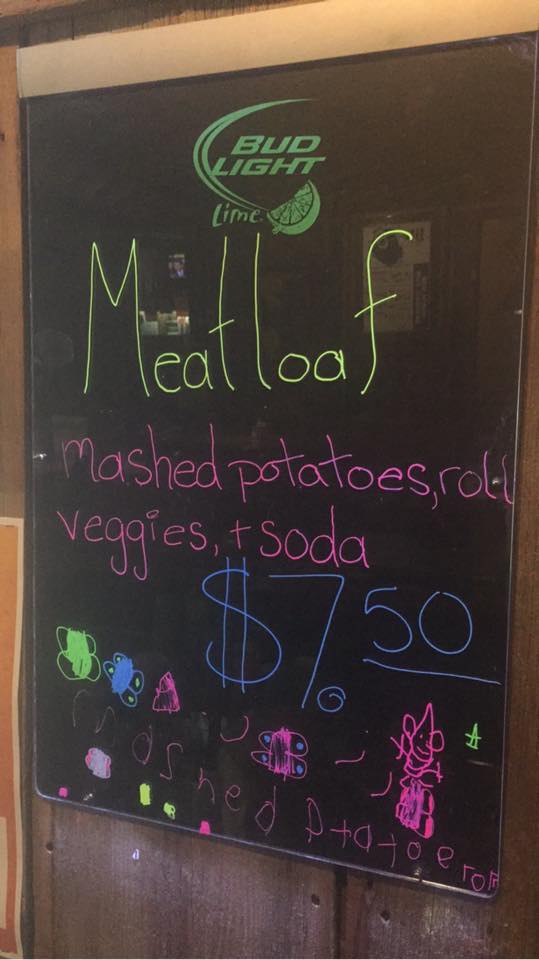 BUD
LIGHT
Lime
Meatloaf
mashed potatoes, roll
veggies, + soda
$7.50
mashed Ptatoe ror